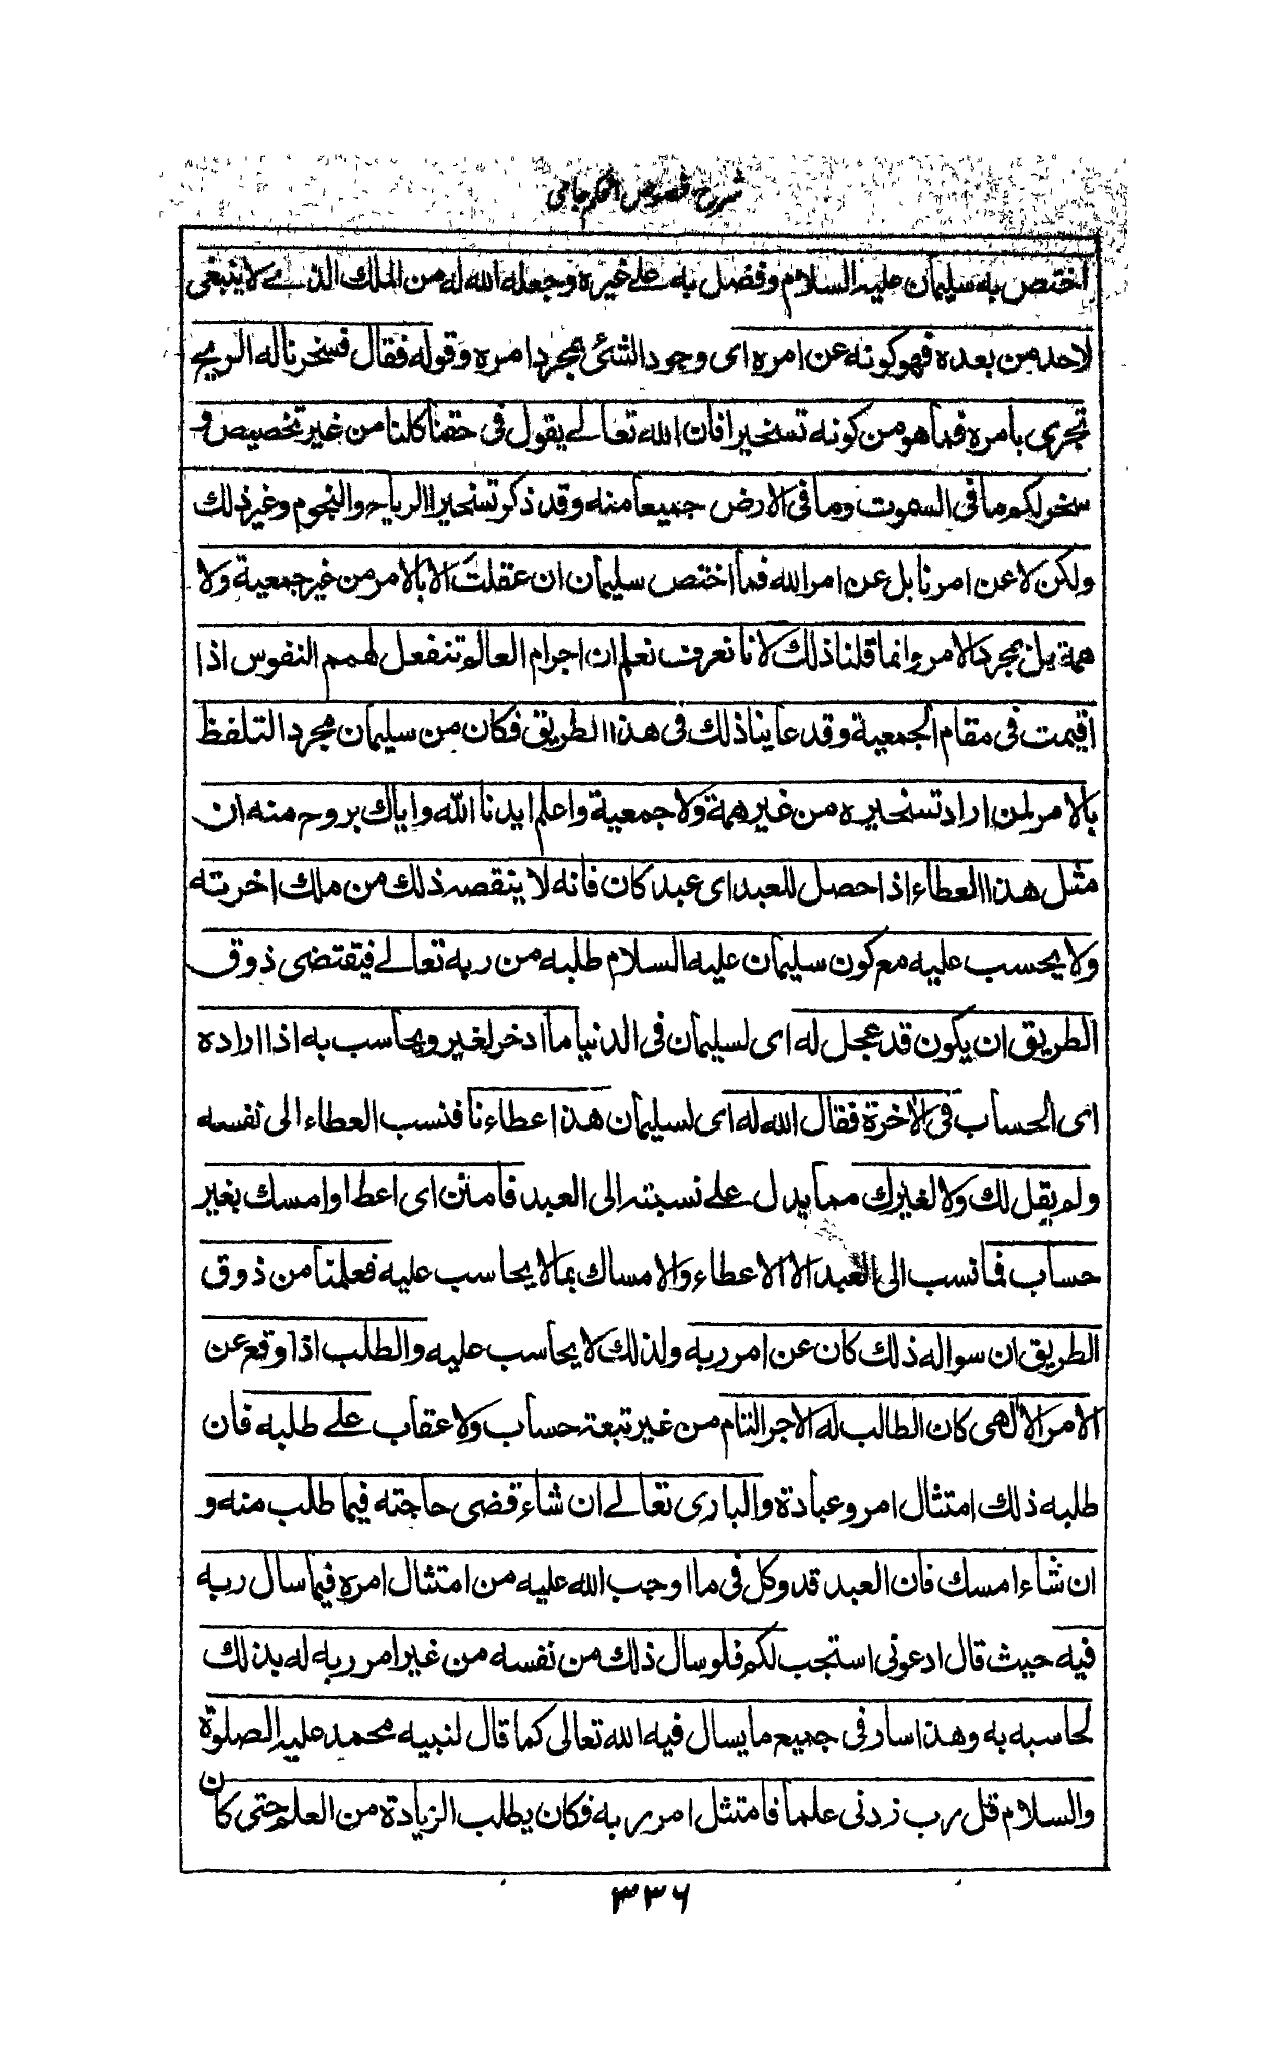 شرح فصوص الحکم جامی
اختص به سلیمان علیه السلام وفضل به علے غیره وجعله الله له من الملك الذے لا ینبغی
لاحد من بعده فهو کونه عن امره ای وجود الشئی بمجرد امره وقوله فقال فسخرنا له الریح
تجری بامره فما هو من کونه تسخیرا فان الله تعالے یقول فی حقنا کلنا من غیر تخصیص و
سخر لکم ما فی السموت وما فی الارض جمیعا منه وقد ذکر تسخیر الریاح والنجوم وغیر ذلك
ولکن لا عن امرنا بل عن امر الله فما اختص سلیمان ان عقلت الا بالامر من غیر جمعیة ولا
همة بل بمجرد الامر وانما قلنا ذلك لانا نعرف نعلم ان اجرام العالم تنفعل لهمم النفوس اذا
اقیمت فی مقام الجمعیة وقد عاینا ذلك فی هذا الطریق فکان من سلیمان مجرد التلفظ
بالامر لمن اراد تسخیره من غیر همة ولا جمعیة واعلم ایدنا الله وایاك بروح منه ان
مثل هذا العطاء اذا حصل للعبد ای عبد کان فانه لا ینقصه ذلك من ملك اخرته
ولا یحسب علیه مع کون سلیمان علیه السلام طلبه من ربه تعالے فیقتضی ذوق
الطریق ان یکون قد عجل له ای لسلیمان فی الدنیا ما ادخر لغیر ویحاسب به اذا اراده
ای الحساب فی الاخرة فقال الله له ای لسلیمان هذا عطاءنا فنسب العطاء الی نفسه
ولم یقل لك ولا لغیرك مما یدل علے نسبته الی العبد فامنن ای اعط او امسك بغیر
حساب فما نسب الی العبد الا الاعطاء والامساك بما لا یحاسب علیه فعلمنا من ذوق
الطریق ان سواله ذلك کان عن امر ربه ولذلك لا یحاسب علیه والطلب اذا وقع عن
الامر الالهی کان الطالب له الاجر التام من غیر تبعة حساب ولا عقاب علے طلبه فان
طلبه ذلك امتثال امر وعبادة والباری تعالے ان شاء قضی حاجته فیما طلب منه و
ان شاء امسك فان العبد قد وکل فی ما اوجب الله علیه من امتثال امره فیما سال ربه
فیه حیث قال ادعونی استجب لکم فلو سال ذلك من نفسه من غیر امر ربه له بذلك
لحاسبه به وهذا سار فی جمیع ما یسال فیه الله تعالی کما قال لنبیه محمد علیه الصلوة
والسلام قل رب زدنی علما فامتثل امر ربه فکان یطلب الزیادة من العلم حتی کان
۳۳۶